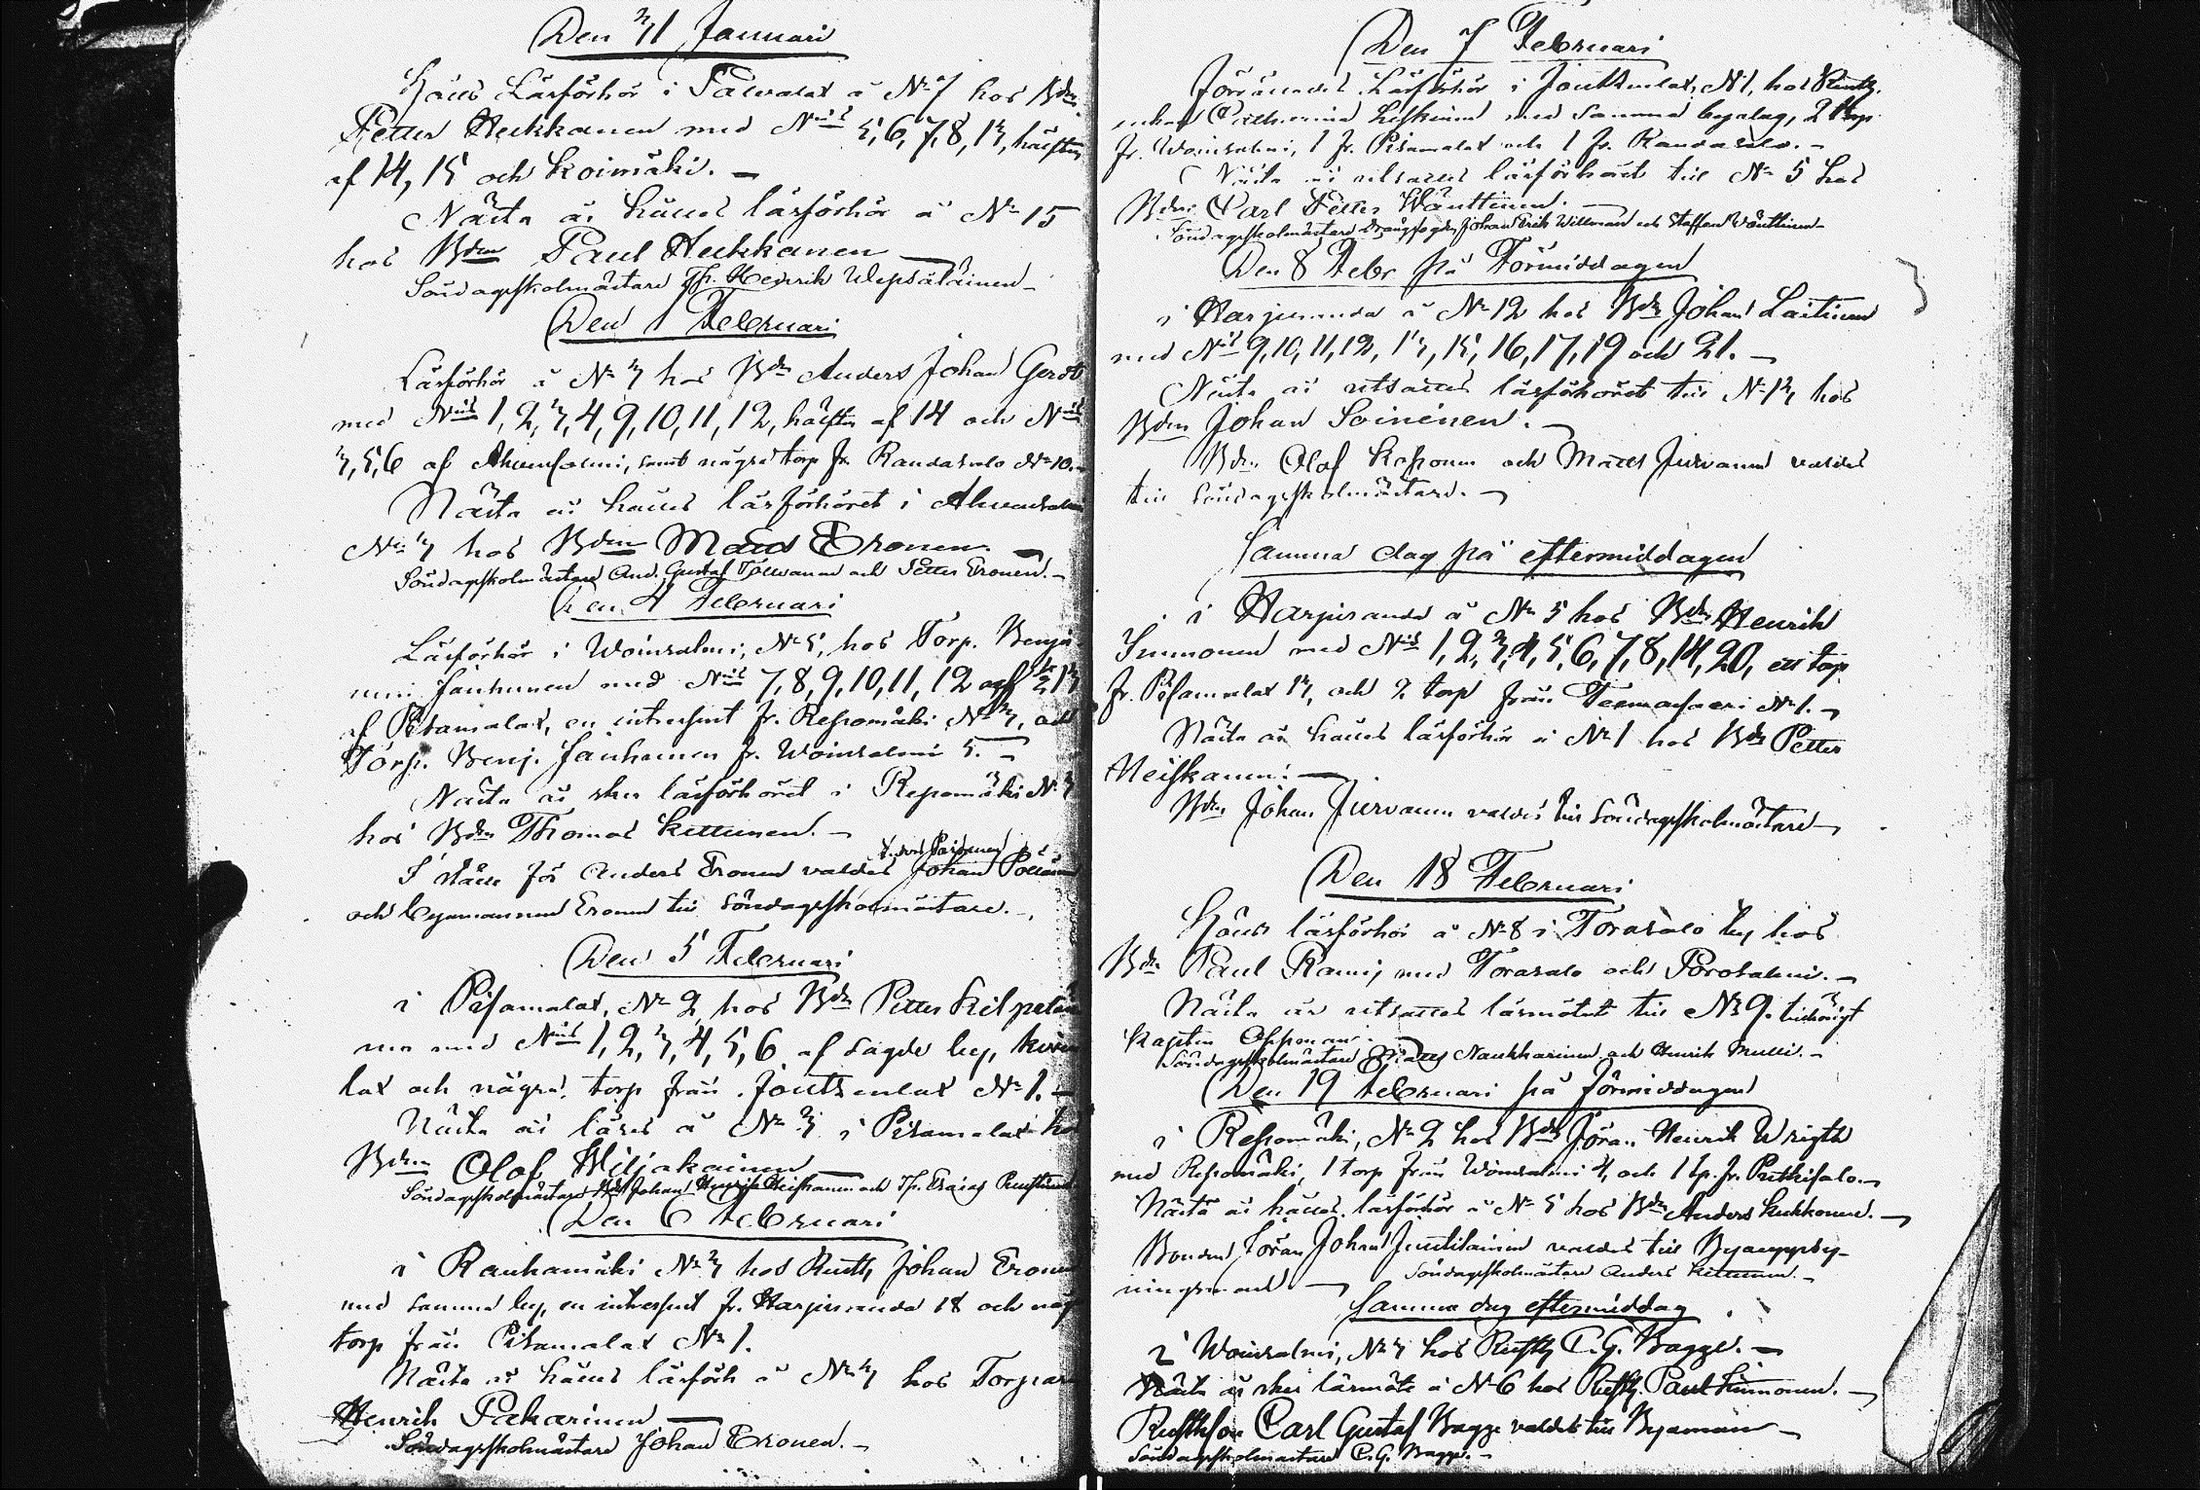 Den 31 Januari
Hölls Läsförhör i Palvalax å No 7 hos Bdn
Petter Heikkanen med Nris 5, 6, 7, 8, 13, hälften
af 14, 15 och Koimäki. —
Nästa år hålles läsförhör å No 15
hos Bdn Paul Heikkanen —
Söndagsskolmästare Th. Henrik Wepsäläinen —
Den 1 Februari
Läsförhör å No 3 hos Bdn Anders Johan
med Nris 1, 2, 3, 4, 9, 10, 11, 12, hälften af 14 och Nris
3, 5, 6 af samt några torp fr. Randasalo No 10. —
Nästa år hålles läsförhöret i
No 3 hos Bdn Mats Eronen. —
Söndagsskolmästare And. Gustaf och Petter Eronen. —
Den 4 Februari
Läsförhör i Woinsalmi, No 5, hos Torp. Benja-
min Janhunen med Nris 7, 8, 9, 10, 11, 12 och ½ 13
af Pisamalax, en intressent fr. Reposmäki No 3, och
Torp. Benj. Janhunen fr. Woinsalmi 5. —
Nästa år sker läsförhöret i Repomäki No 3
hos Bdn Thomas Kettunen. —
I stället för Anders Eronen valdes Johan
och byamannen Eronen till Söndagsskolmästare. —
Den 5 Februari
i Pisamalax, No 2 hos Bdn Petter Kilpeläi-
nen med Nris 1, 2, 3, 4, 5, 6 af sagde by,
lax och några torp från Jouttenlax No 1. —
Nästa år läses å No 3 i Pisamalax hos
Bdn Olof Miljakainen —
Söndagsskolmästare Johan Henrik Heiskanen och Th. Esaias
Den 6 Februari
i Rauhamäki No 3 hos Rusth. Johan Eronen
med samma by, en intressent fr. Harjuranda 18 och någ
torp från Pisamalax No 1.
Nästa år hålles läsförh å No 3 hos Torpar
Henrik Pakarinen —
Söndagsskolmästare Johan Eronen. —
Den 7 Februari
Förrättades Läsförhör i Jouttenlax, No 1, hos Rusth.
enkan Catharina med samma byalag, 2 torp
fr. Woinsalmi, 1 fr. Pisamalax och 1 fr. Randasalo. —
Nästa år utsattes läsförhöret till No 5 hos
Bdn Carl Petter Wänttinen. —
Söndagsskolmästare Johan Erik Willman och Staffan Wänttinen —
Den 8 Febr på Förmiddagen
i Harjuranda å No 12 hos Bdn Johan Laitinen
med Nris 9, 10, 11, 12, 13, 15, 16, 17, 19 och 21. —
Nästa år utsattes läsförhöret till No 13 hos
Bdn Johan Soininen. —
Bdn Olof Kosonen och Mats Jurvanen valdes
till Söndagsskolmästare. —
Samma dag på eftermiddagen
i Harjuranda å No 5 hos Bdn Henrik
Immonen med Nris 1, 2, 3, 4, 5, 6, 7, 8, 14, 20, ett torp
fr. Pisamalax 13, och 2 torp från No 1. —
Nästa år hålles läsförhör å No 1 hos Bdn Petter
Heiskanen. —
Bdn Johan Jurvanen valdes till Söndagsskolmästare —
Den 18 Februari
Hölls läsförhör å No 8 i Torasalo by hos
Bdn Paul Rami, med Torasalo och Porosalmi. —
Nästa år utsattes läsmötet till No 9. tillhörigt
Kapten
Söndagsskolmästare Mats Naukkarinen och Henrik Mulli. —
Den 19 Februari på förmiddagen
i Repomäki, No 2 hos Bdn Göran Henrik Wrigth
med Repomäki, 1 torp från Woinsalmi 4, och 1 tp. fr. —
Nästa år hålles läsförhör å No 5 hos Bdn Anders Kukkonen. —
Bonden Göran Johan Juutilainen valdes till Byauppsy-
ningsmand. —
Söndagsskolmästare Anders Kettunen. —
Samma dag eftermiddag
i Woinsalmi, No 3 hos Rusth C. G. Bagge. —
Nästa år sker läsmöte å No 6 hos Rusth. Paul Kinnonen. —
Rusthån Carl Gustaf Bagge valdes till Byaman —
Söndagsskolmästare C. G. Bagge. —